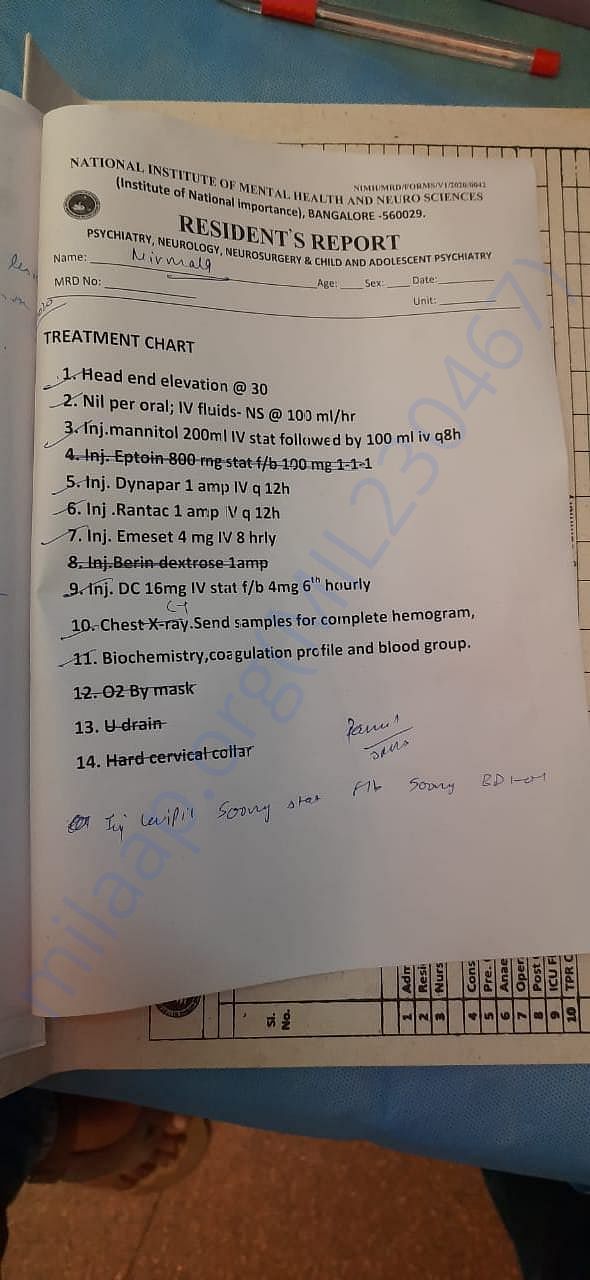 NIMH/MRD/FORMS/V1/2020/0042
NATIONAL INSTITUTE OF MENTAL HEALTH AND NEURO SCIENCES
(Institute of National Importance), BANGALORE -560029.
RESIDENT'S REPORT
PSYCHIATRY, NEUROLOGY, NEUROSURGERY & CHILD AND ADOLESCENT PSYCHIATRY
Name: Nirmala
MRD No: Age: Sex: Date:
Unit:
TREATMENT CHART
1. Head end elevation @ 30
2. Nil per oral; IV fluids- NS @ 100 ml/hr
3. Inj.mannitol 200ml IV stat followed by 100 ml iv q8h
4. Inj. Eptoin 800 mg stat f/b 100 mg 1-1-1
5. Inj. Dynapar 1 amp IV q 12h
6. Inj .Rantac 1 amp IV q 12h
7. Inj. Emeset 4 mg IV 8 hrly
8. Inj.Berin dextrose 1amp
9. Inj. DC 16mg IV stat f/b 4mg 6th hourly
CT
10. Chest X-ray.Send samples for complete hemogram,
11. Biochemistry,coagulation profile and blood group.
12. O2 By mask
13. U drain
14. Hard cervical collar
Inj Levipil 500mg stat f/b 500mg BD 1-0-1
milaap.org(MIL230467)
Sl. No.
1 Adm
2 Resi
3 Nurs
4 Cons
5 Pre.
6 Anae
7 Oper
8 Post
9 ICU F
10 TPR C